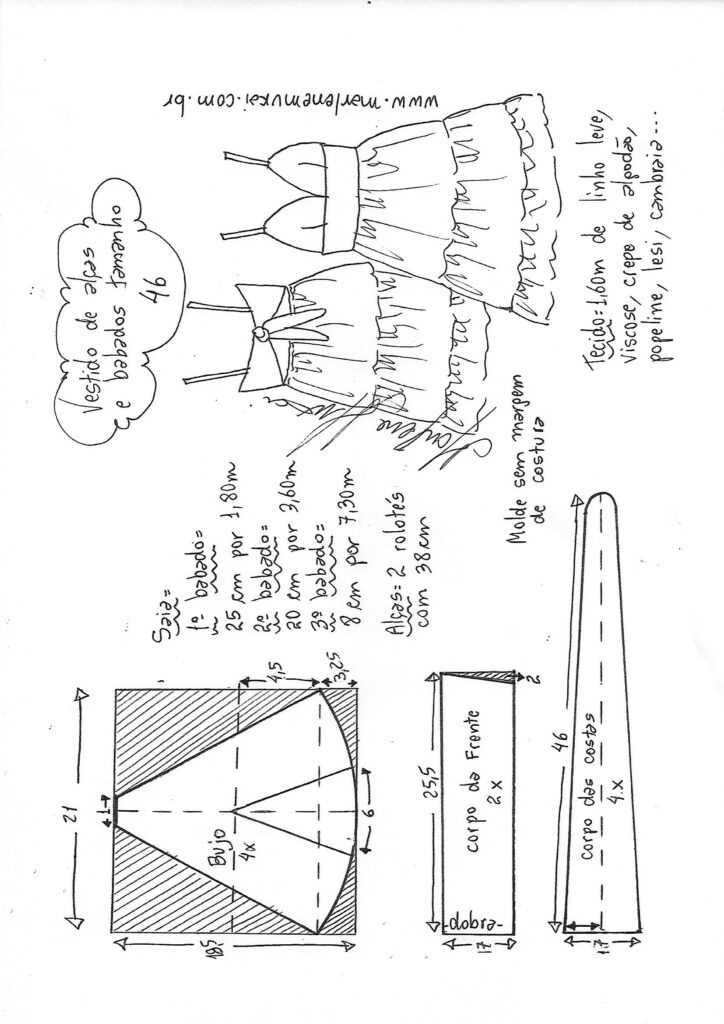 Vestido de alças
e babados tamanho
46
www.marlenemukai.com.br
Marlene Mukai
Saia=
1º babado=
25 cm por 1,80m
2º babado=
20 cm por 3,60m
3º babado=
8 cm por 7,30m
Alças= 2 rolotés
com 38cm
Molde sem margem
de costura
Tecido=1,60m de linho leve,
viscose, crepe de algodão,
popeline, lesi, cambraia...
21
1
18,5
4,5
3,25
6
Bujo
4x
25,5
corpo da Frente
2x
-dobra-
2
46
corpo das costas
4x